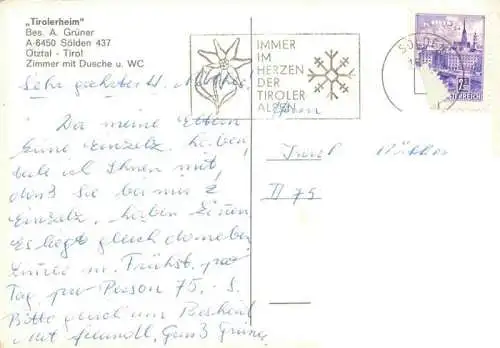 „Tirolerheim"
Bes. A. Grüner
A-6450 Sölden 437
Ötztal - Tirol
Zimmer mit Dusche u. WC
IMMER
IM
HERZEN
DER
TIROLER
ALPEN
SÖLDEN
Sehr geehrter H.
Da meine Eltern
keine Einzelz. haben
teile ich Ihnen mit,
daß Sie bei mir 2
Einzelz. haben können
Es liegt gleich daneben
Zimmer m. Frühst. pro
Tag, pro Person 75,- S.
Bitte gleich um Bescheid
Mit freundl. Gruß Grüner
Herrn
II 75